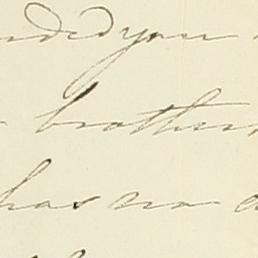 ded you
brother
has no